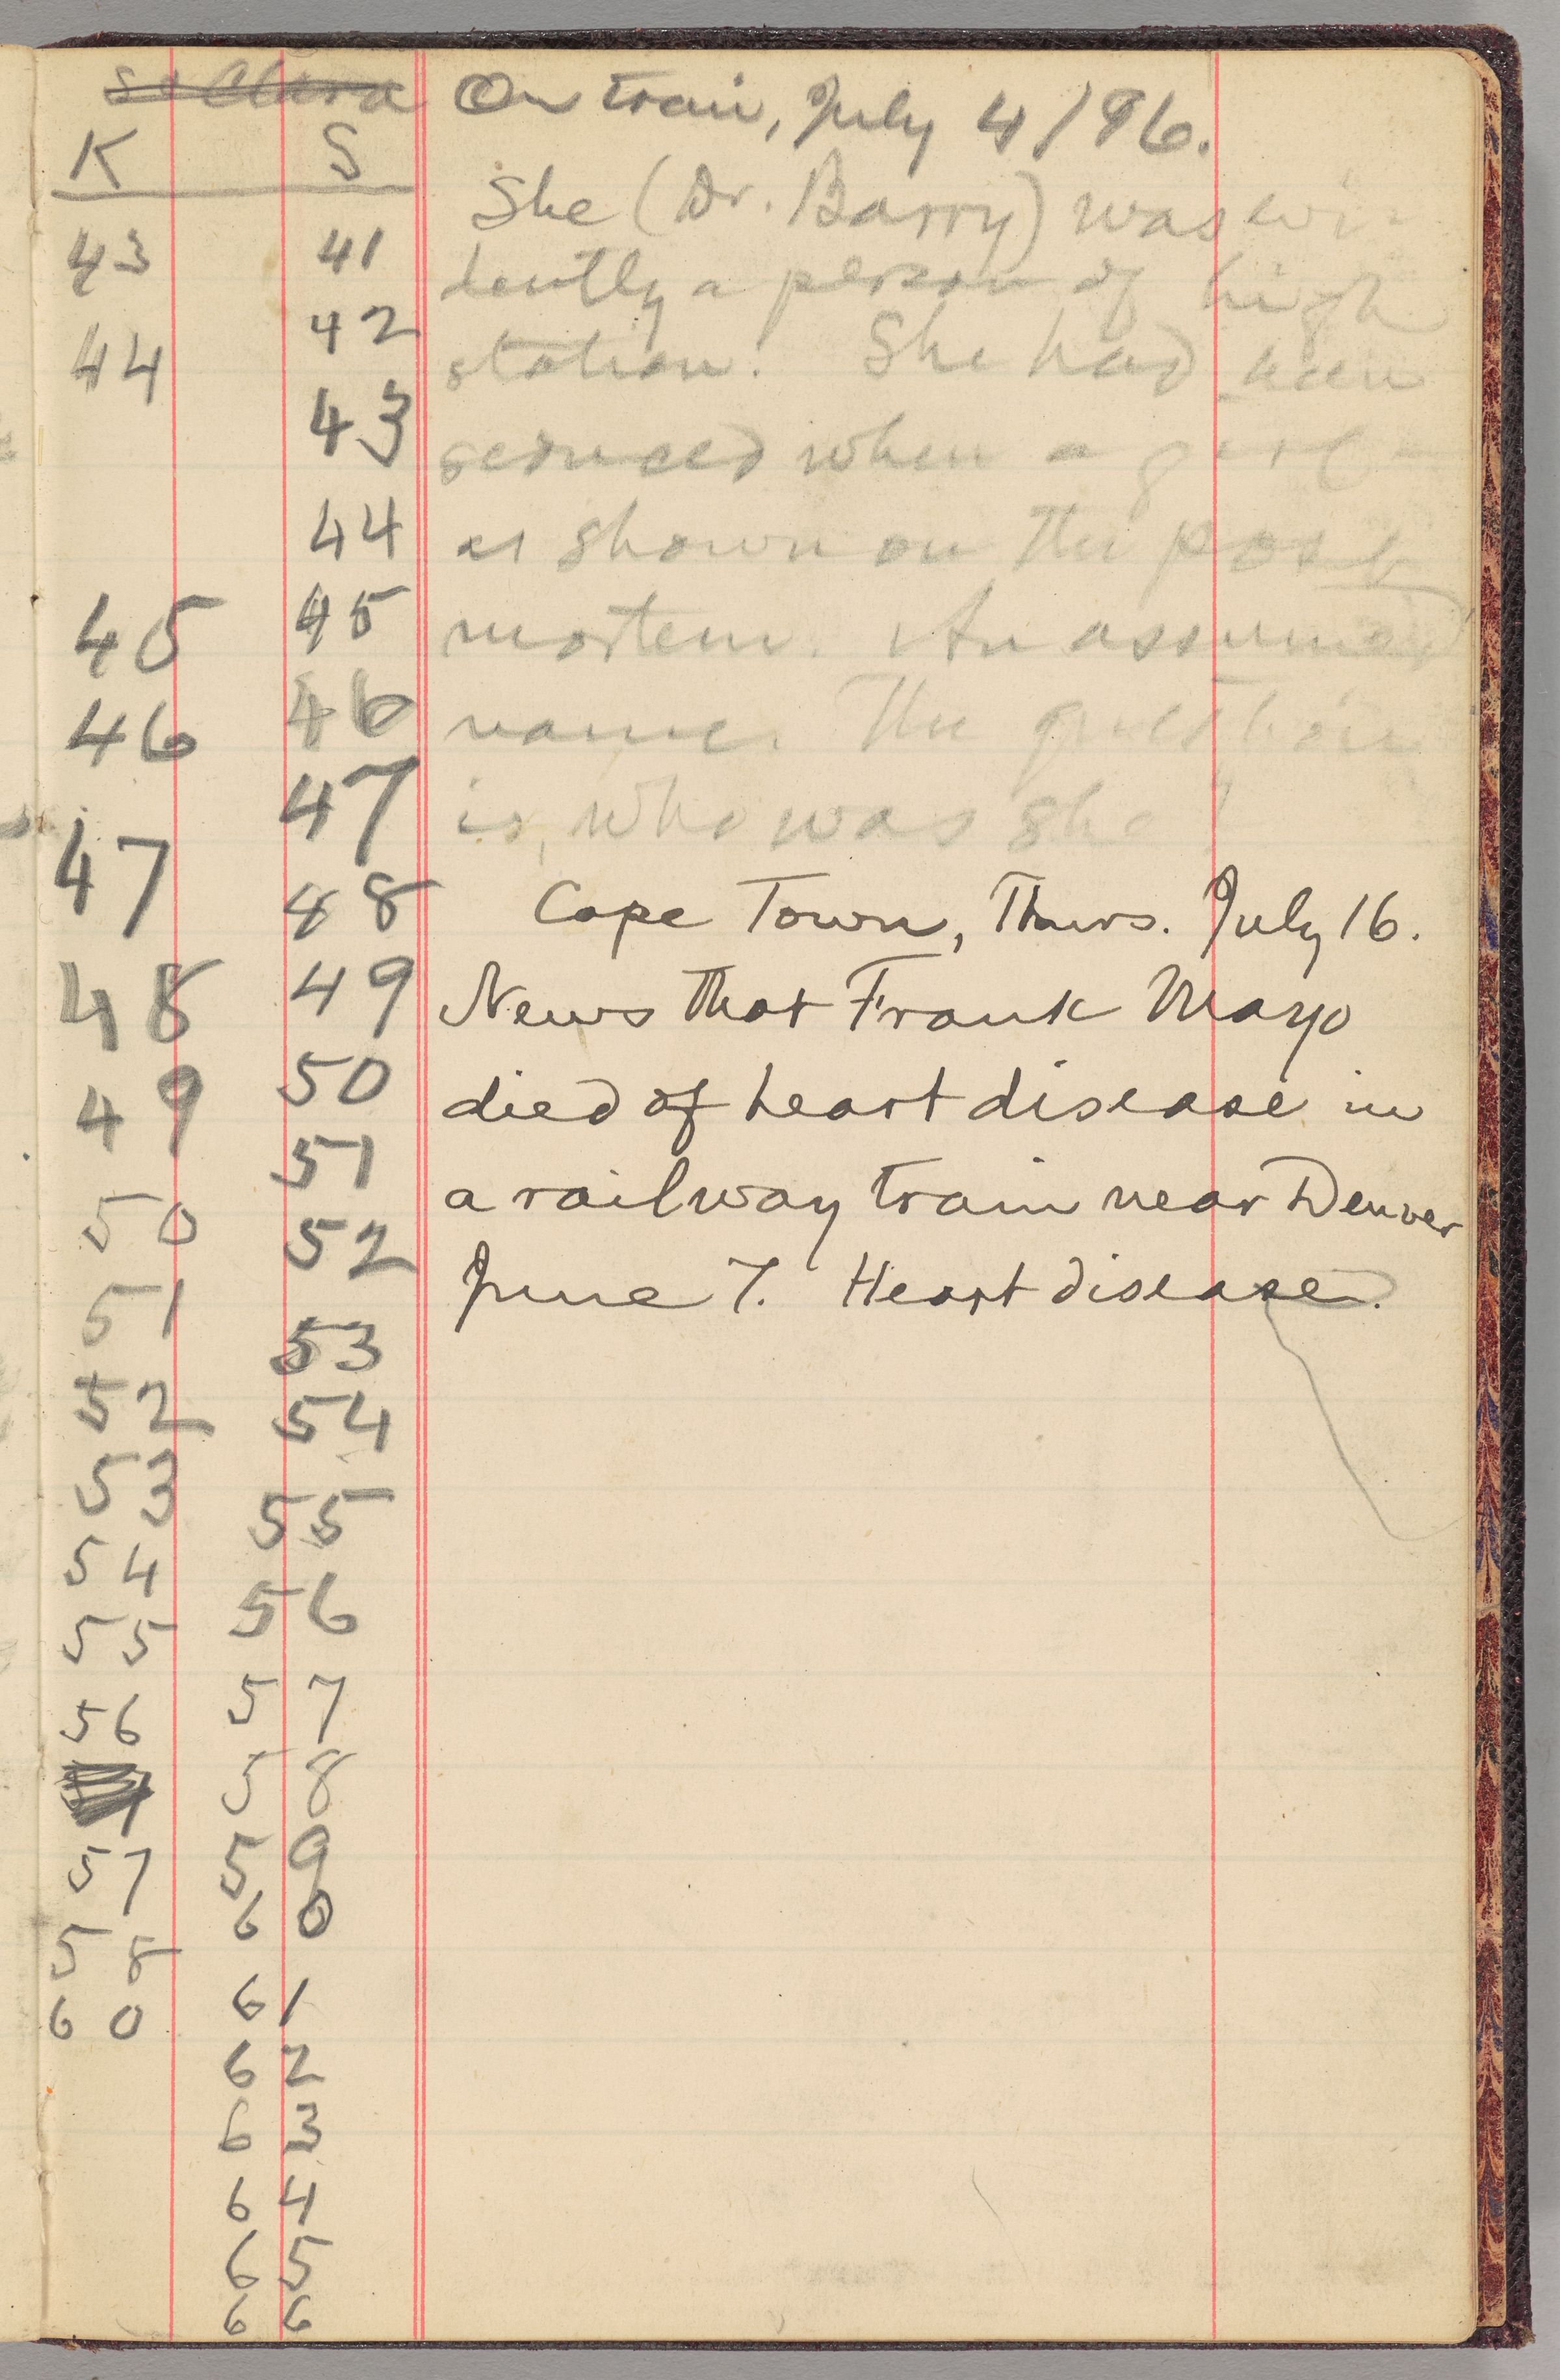 so Clara
K S
43 41
44 42
43
44
45 45
46 46
47 47
48 48
49 49
50 50
51 51
52 52
53 53
54 54
55 55
56 56
57 57
58 58
60 59
60
61
62
63
64
65
66
On train, July 4/96.
She (Dr. Barry) was evi-
dently a person of high
station. She had been
seduced when a girl—
as shown on the post
mortem. An assumed
name. The question
is, who was she?
Cape Town, Thurs. July 16.
News that Frank Mayo
died of heart disease in
a railway train near Denver
June 7. Heart disease.